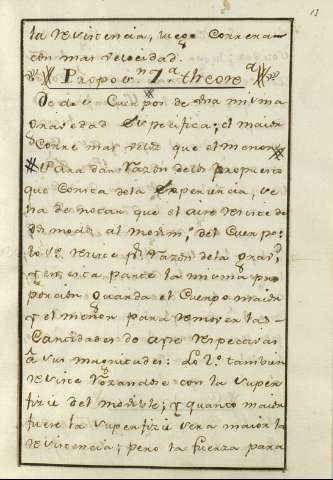 13
la resistencia, luego correra
con mas velocidad.
Propo.n 7.a theore.a
De dos Cuerpos de una misma
gravedad especifica; el maior
corre mas veloz que el menor
Para dar razon desta propuesta
que consta dela Experiencia, se
ha de notar que el aire resiste de
dos modos al movim.to del Cuerpo:
lo 1.o resiste p.r razon dela grav.d
y en esta parte la misma pro
porcion guarda el Cuerpo maior
y el menor para remover las
Cantidades de ayre respectivas
a sus magnitudes: Lo 2.o tambien
resiste rozandose con la super
fizie del movible; y quanto maior
fuere la superfizie sera maior la
resistencia; pero la fuerza para